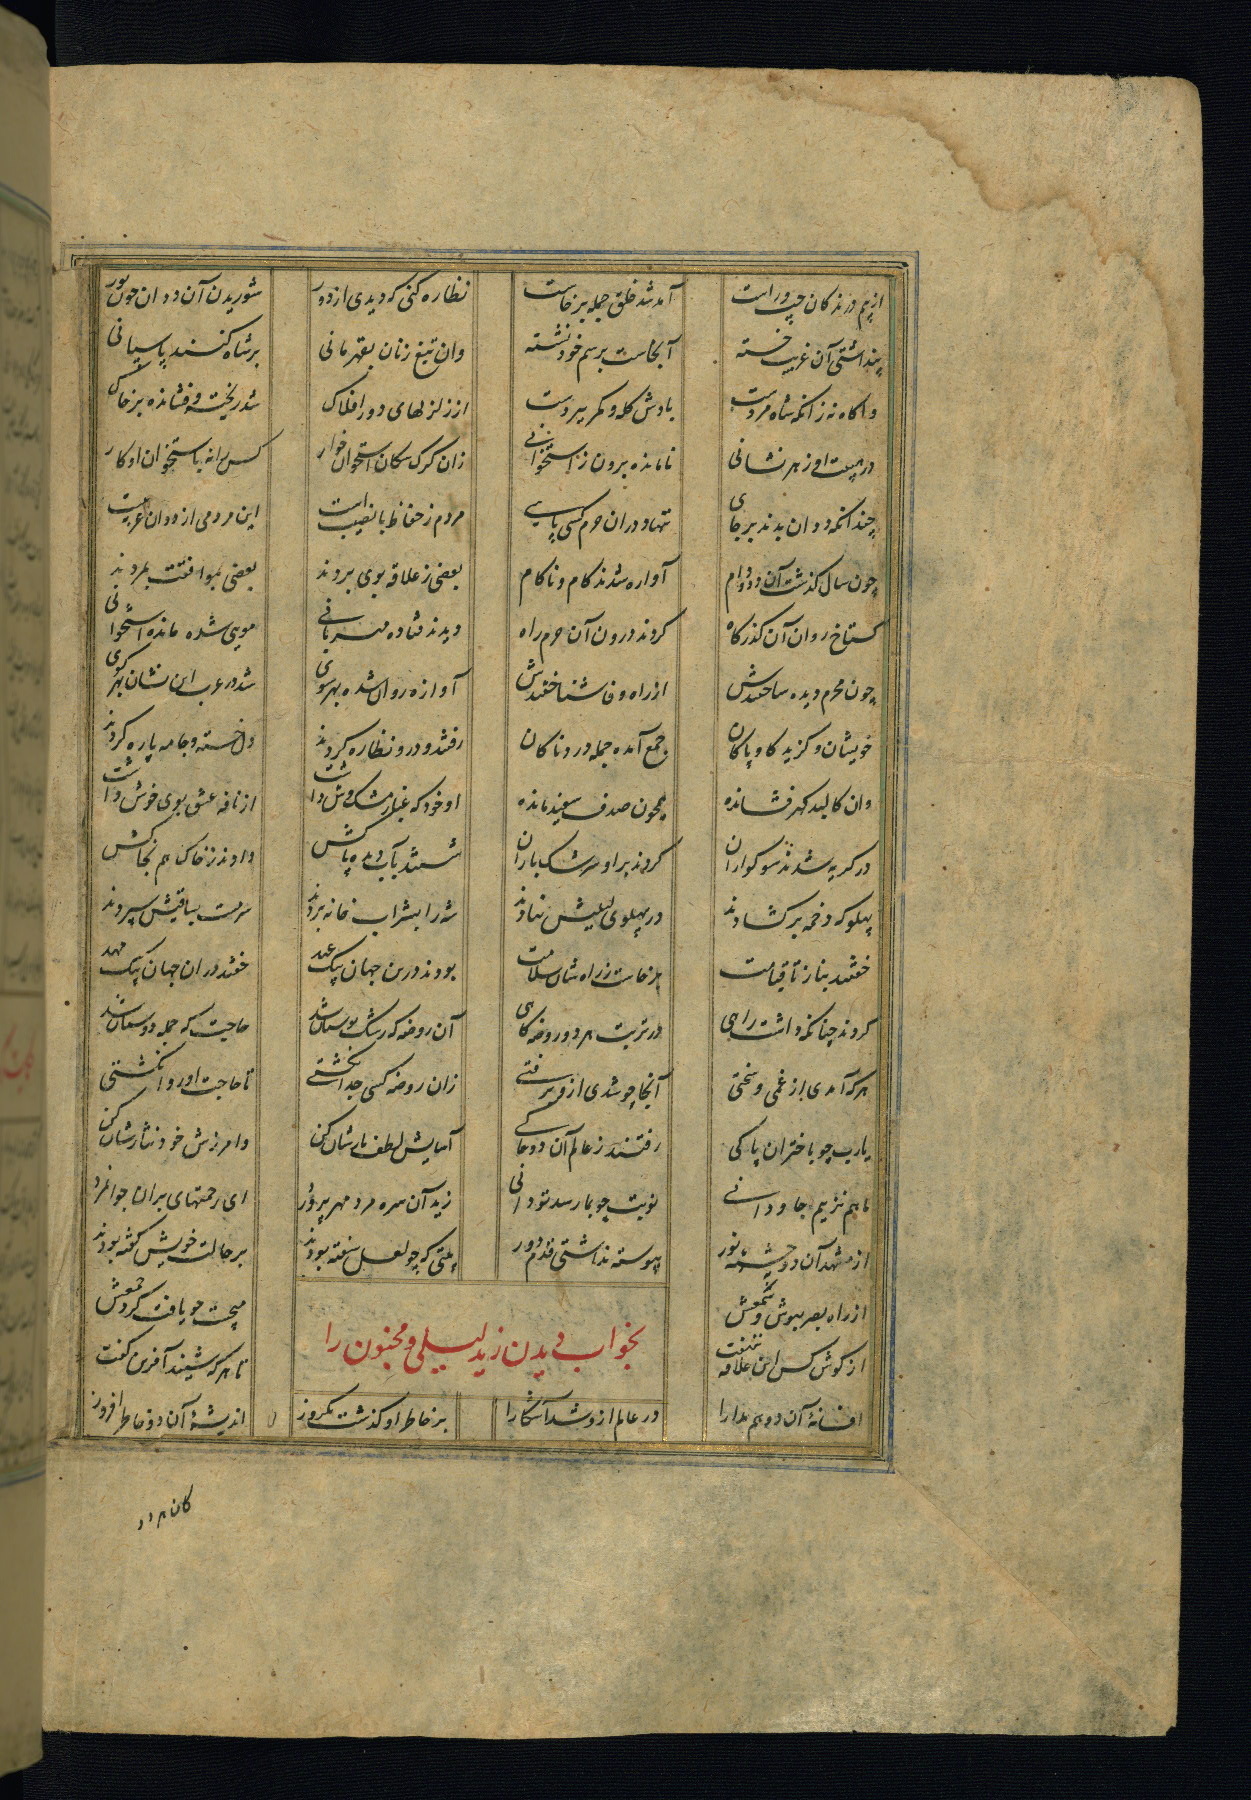 از بیم درندگان چپ و راست آمد شد خلق جمله برخاست نظاره کنی که دیدی از دور شوریدن آن ددان چون نور
پنداشتی آن غریب خسته آنجاست برسم خود نشسته وان تیغ زنان بقهرمانی بر شاه کنند پاسبانی
واگاه نه زانکه شاه مردست بادش کله و کمر ببردست از زلزلهای دور افلاک شد ریخته و فشانده بر خاک
در هیت او ز هر نشانی نامانده برون ز استخوانی زان گرک سکان استخوان خوار کس را نه باستخوان او کار
چندانکه ددان بدند بر جای ننهاد دران حرم کسی پای مردم ز حفاظ با نصیب است این مردمی از ددان غریبست
چون سال گذشت آن دد و دام آواره شدند کام و ناکام بعضی ز علاقه بوی بردند بعضی بموافقت بمردند
گستاخ روان آن گذرگاه کردند درون آن حرم راه دیدند فتاده مهربانی مویی شده مانده استخوانی
چون محرم دیده ساختندش از راه وفا شناختندش آوازه روان شده بهر سوی شد در عرب این نشان بهر کوی
خویشان و گزیدگان و پاکان جمع آمده جمله دردناکان رفتند و درو نظاره کردند دل خسته و جامه پاره کردند
وان کالبد گهر فشانده همچون صدف سفید مانده او خود که غبار مشک وش داشت از نافه عشق بوی خوش داشت
در گریه شدند سوکواران کردند بر او سرشک باران شستند بآب دیده پاکش دادند ز خاک هم بخاکش
پهلوکه دخمه برگشادند در پهلوی لیلیش نهادند شه را بشراب خانه بردند سرمست بساقیش سپردند
خفتند بناز تا قیامت برخاست ز راه شان سلامت بودند درین جهان بیک عهد خفتند دران جهان بیک مهد
کردند چنانکه داشت راهی در تربت هر دو روضه گاهی آن روضه که رشک بوستان شد حاجت که جمله دوستان شد
هرکه آمدی از غمی و سختی آنجا چو شدی از و برفتی زان روضه کسی جدا نگشتی تا حاجت او روا نگشتی
یارب چو باختران پاکی رفتند ز عالم آن دو خاکی آسایش لطف یارشان کن وامرزش خود نثارشان کن
ما هم نزییم جاودانی نوبت چو بما رسد تو دانی زید آن سره مرد مهرپرور ای رحمتهای بران جوانمرد
از مشهد آن دو چشمه نور پیوسته نداشتی قدم دور بیتی که چو لعل سفته بودند بر حالت خویش گفته بودند
از راه بصر بهوش و سمعش میجست چو یافت کرد جمعش
بخواب دیدن زید لیلی و مجنون را
از گوش کس این علاقه ننهفت تا هر که شنید آفرین گفت
افسانه آن دو هم مدارا در عالم ازو شد آشکارا بر خاطر او گذشت یکروز اندیشه آن دو خاطر افروز
کان هر دو